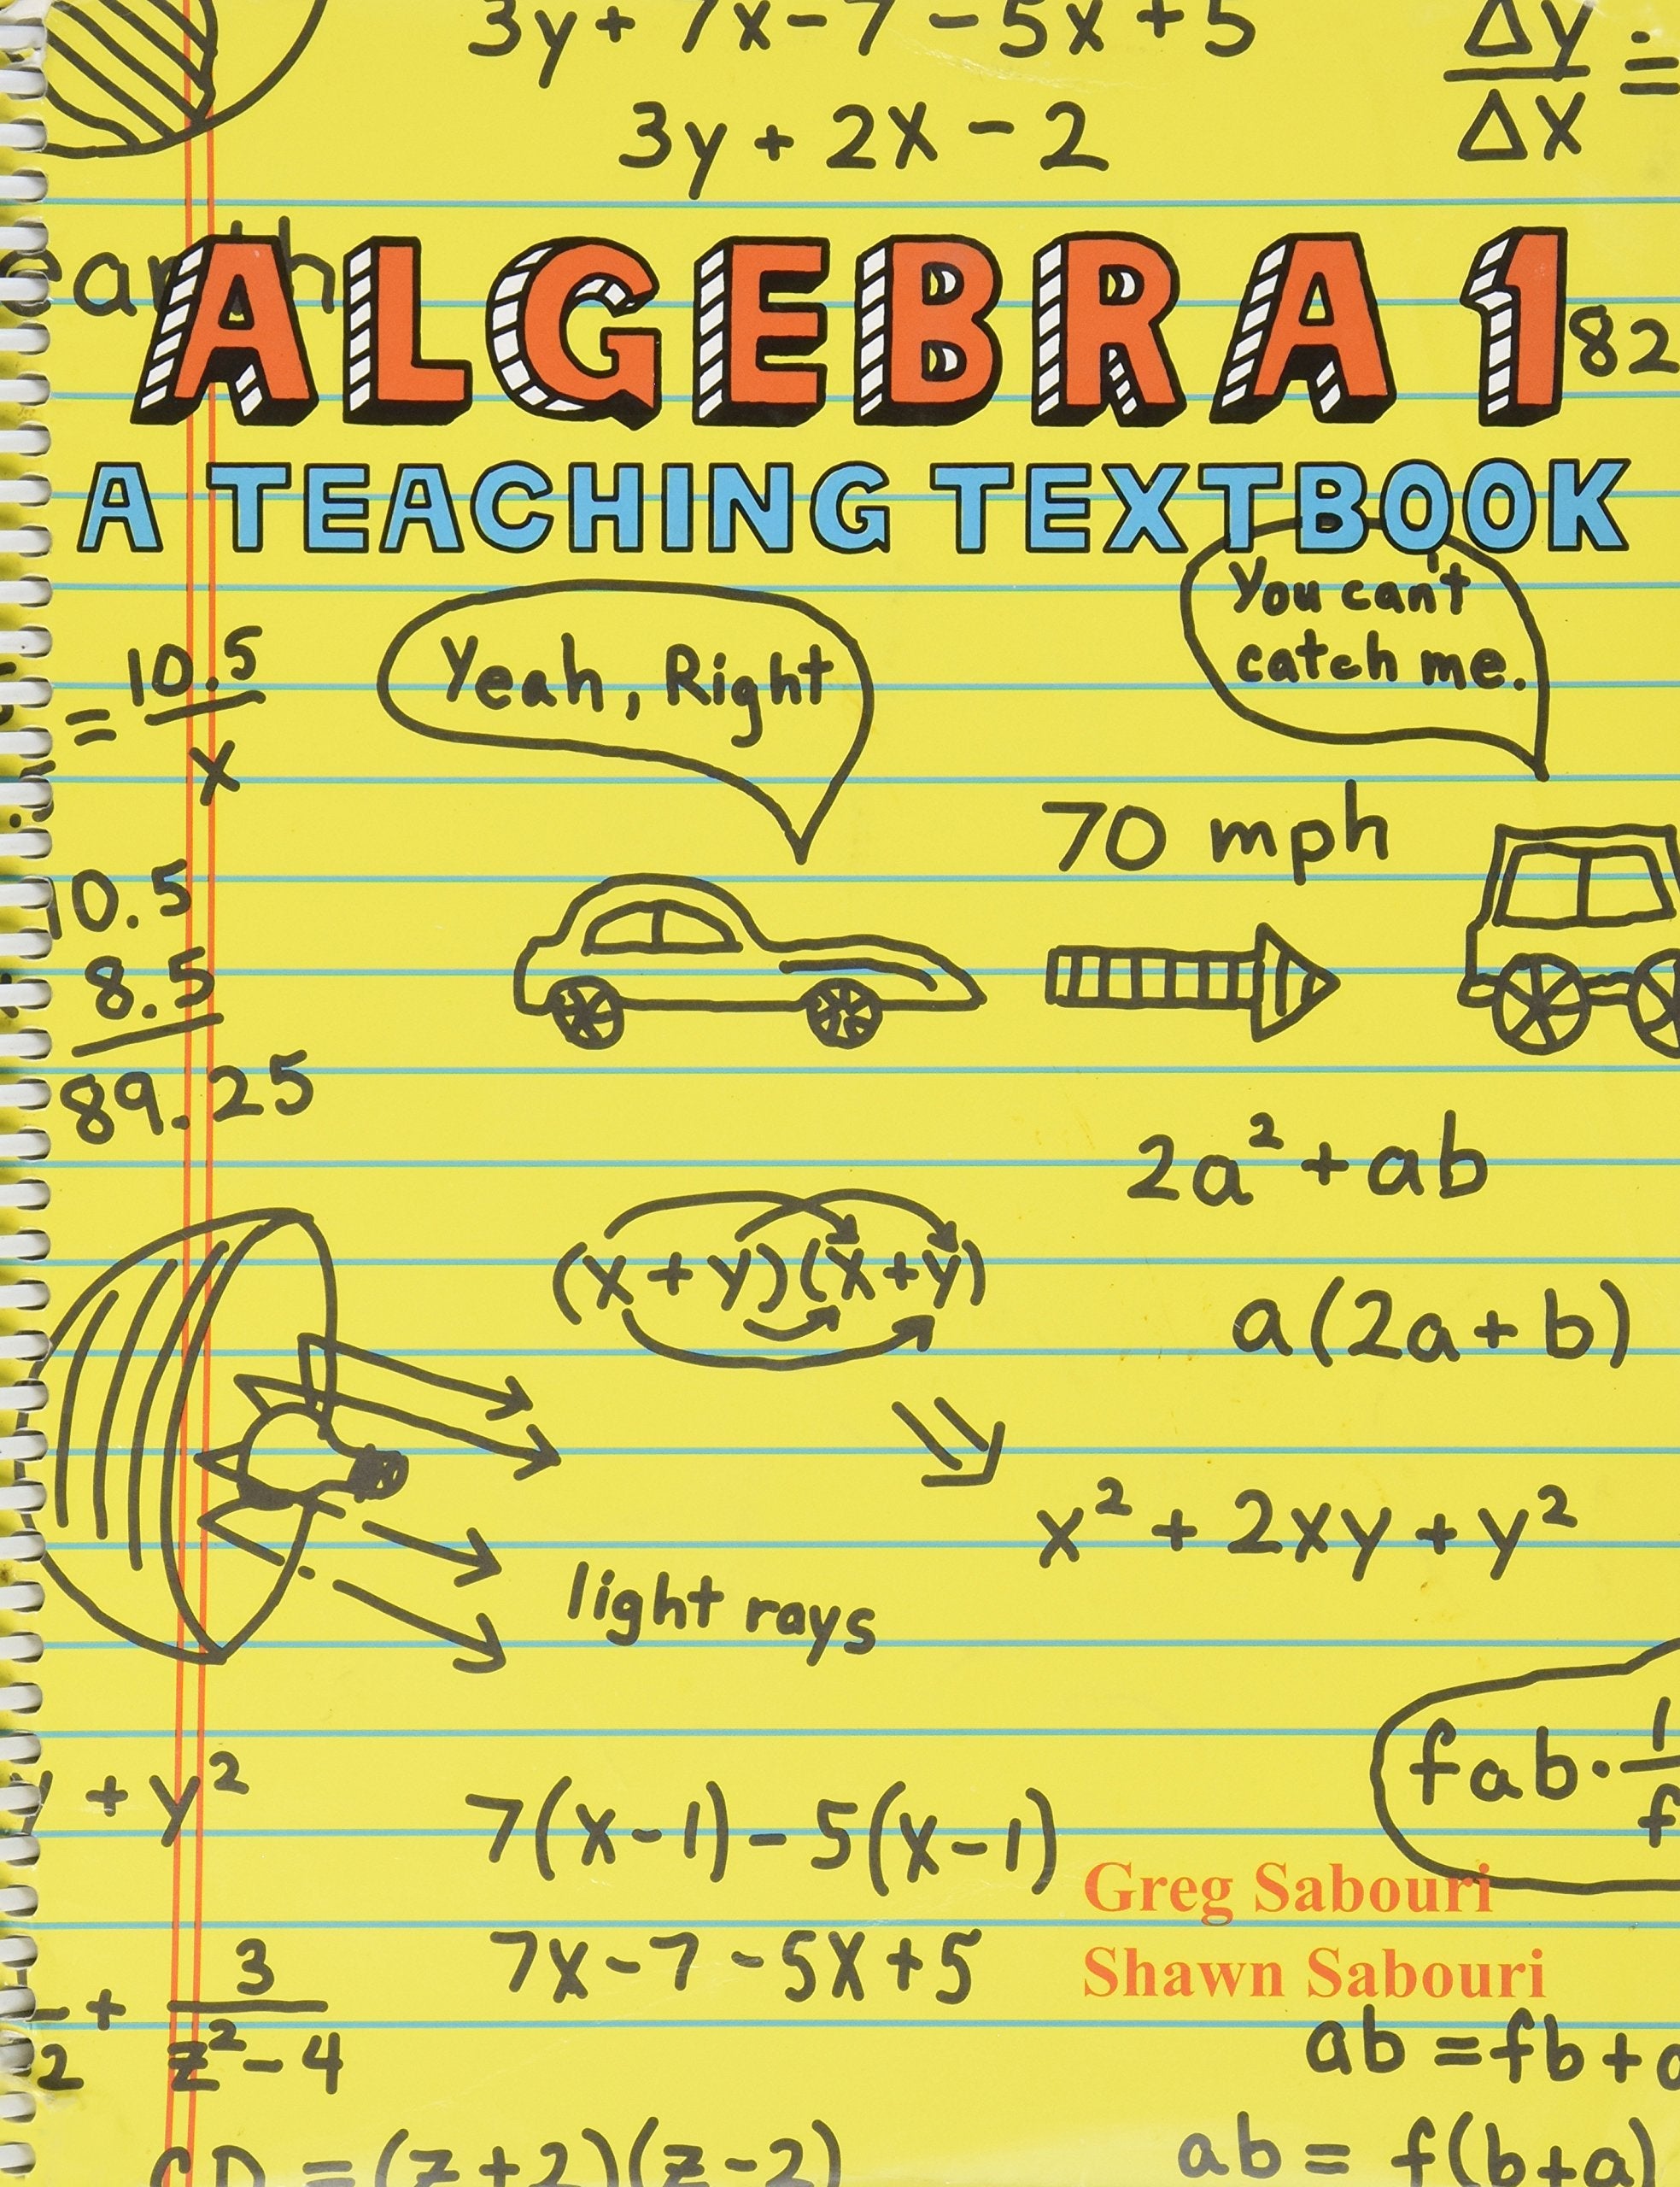 3y + 7x - 7 - 5x + 5
3y + 2x - 2
Δy =
Δx
ALGEBRA 1
82
A TEACHING TEXTBOOK
You can't
catch me.
Yeah, Right
= 10.5
x
70 mph
10.5
8.5
89.25
2a² + ab
(x + y)(x + y)
a(2a + b)
x² + 2xy + y²
light rays
fab · 1
f
+ y²
7(x - 1) - 5(x - 1)
Greg Sabouri
7x - 7 - 5x + 5
Shawn Sabouri
+ 3
2 z² - 4
ab = fb +
CD = (z + 2)(z - 2)
ab = f(b + a)